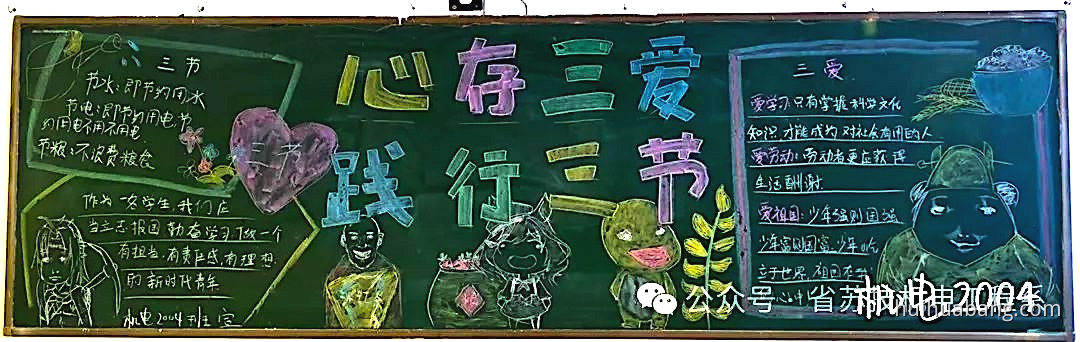 三节
节水:即节约用水
节电:即节约用电 节
约用电不用不电
节粮:不浪费粮食
三节
作为一女学生,我们应
当立志报国 勤奋学习,做一个
有担当,有责任感,有理想
的新时代青年
机电2004班 宣
心存三爱
践行三节
三爱
爱学习:只有掌握科学文化
知识,才能成为 对社会有用的人
爱劳动:劳动者更应获得
生活酬谢
爱祖国:少年强则国强
少年富则国富,少年
立于世界,祖国
公众号
机电2004